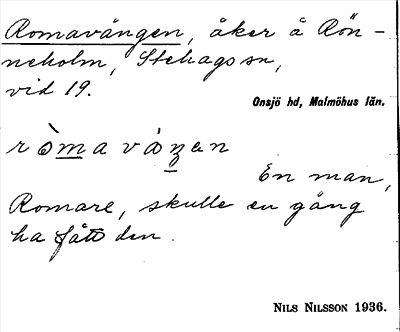 Romavången, åker å Rön-
neholm, Stehags sn,
vid 19.
Onsjö hd, Malmöhus län.
En man,
Romare, skulle en gång
ha fått den.
NILS NILSSON 1936.